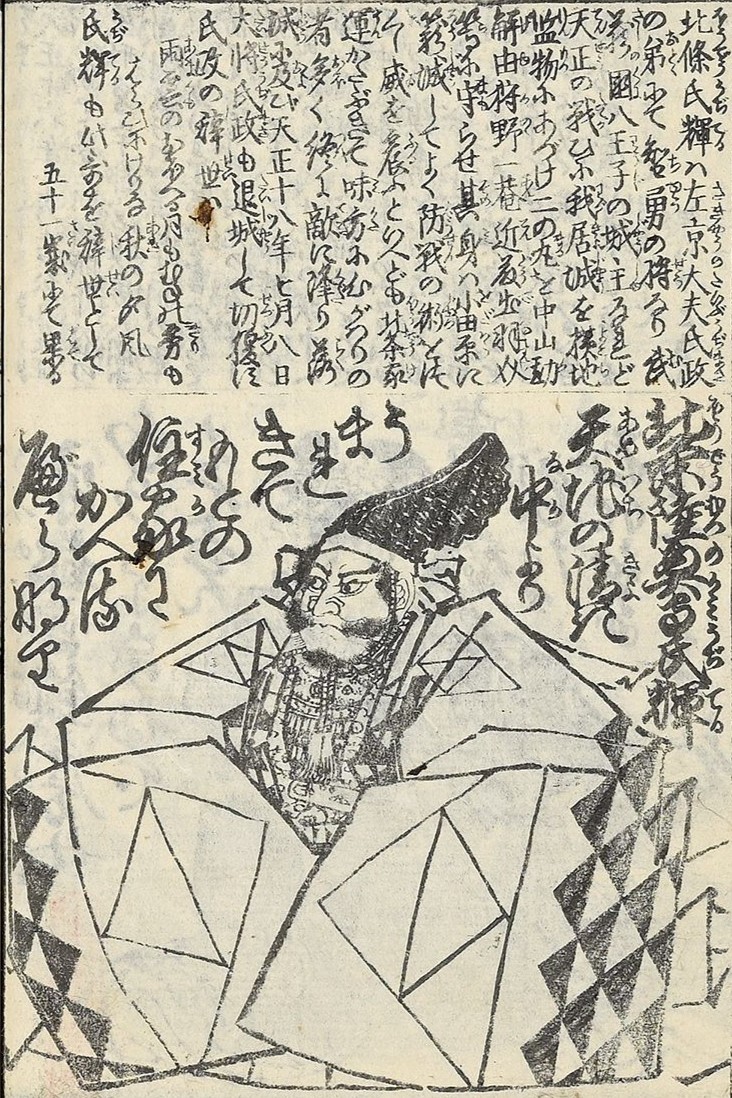 北條氏輝ハ左京大夫氏政
の弟にて智勇の将なり武
州八王子の城主なれど
天正の戦ひに我居城を横地
監物にあづけ二の丸を中山勘
解由狩野一菴近藤出羽
等に守らせ其身ハ小田原に
籠城してよく防戦の術を
威を震ふといへども北条家
運かたぶきて味方に
者多く終に敵に降り落
城に及び天正十八年七月八日
大将氏政も退城して切腹に
氏政の辞世に
雨雲のおほへる月もむねの霧も
はらひにけりな秋の夕風
氏輝も此哥を辞世として
五十一歳にて果る
北条陸奥守氏輝
天地の清き
中より
うまれ
きて
もとの
住家に
かへる
べらなり